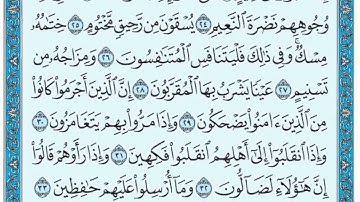 وُجُوهِهِمْ نَضْرَةَ ٱلنَّعِيمِ ٢٤ يُسْقَوْنَ مِن رَّحِيقٍ مَّخْتُومٍ ٢٥ خِتَٰمُهُۥ
مِسْكٌ ۚ وَفِى ذَٰلِكَ فَلْيَتَنَافَسِ ٱلْمُتَنَٰفِسُونَ ٢٦ وَمِزَاجُهُۥ مِن
تَسْنِيمٍ ٢٧ عَيْنًا يَشْرَبُ بِهَا ٱلْمُقَرَّبُونَ ٢٨ إِنَّ ٱلَّذِينَ أَجْرَمُوا۟ كَانُوا۟
مِنَ ٱلَّذِينَ ءَامَنُوا۟ يَضْحَكُونَ ٢٩ وَإِذَا مَرُّوا۟ بِهِمْ يَتَغَامَزُونَ ٣٠
وَإِذَا ٱنقَلَبُوٓا۟ إِلَىٰٓ أَهْلِهِمُ ٱنقَلَبُوا۟ فَكِهِينَ ٣١ وَإِذَا رَأَوْهُمْ قَالُوٓا۟
إِنَّ هَٰٓؤُلَآءِ لَضَآلُّونَ ٣٢ وَمَآ أُرْسِلُوا۟ عَلَيْهِمْ حَٰفِظِينَ ٣٣